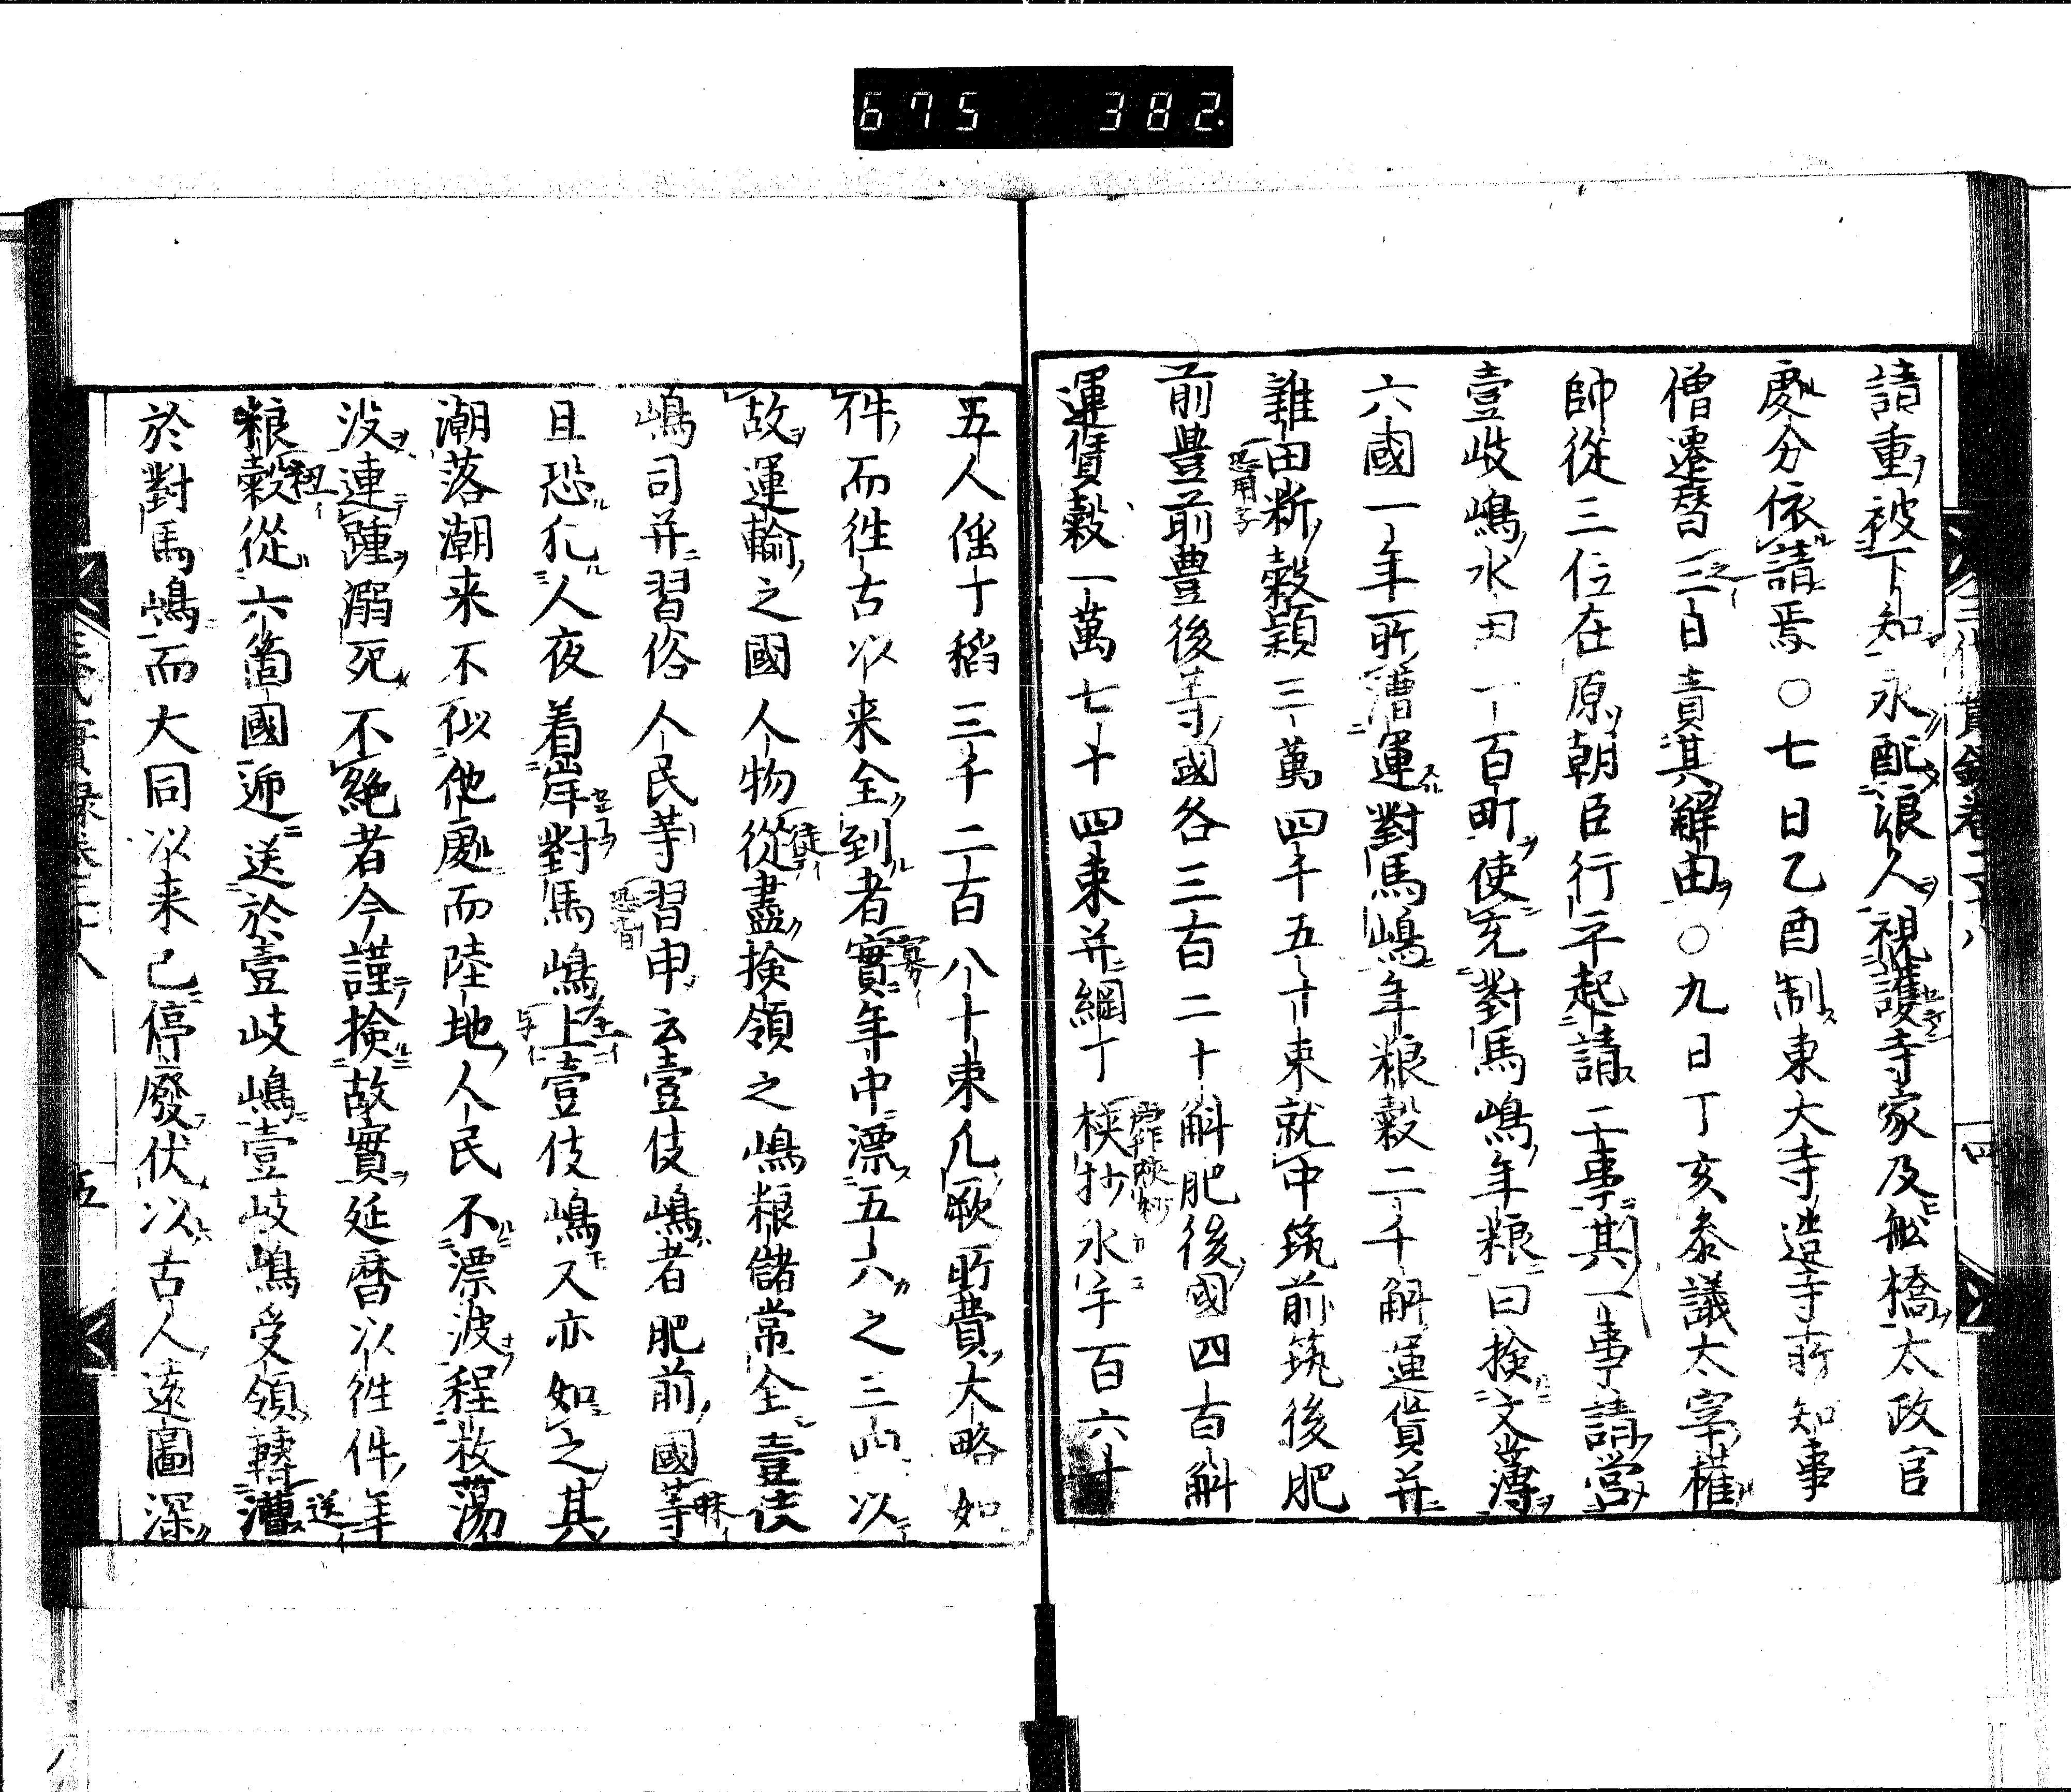 675 382
請重被下知永配浪人視護寺家及船橋太政官
處分依請焉○七日乙酉制東大寺造寺所知事
僧遷替三日責其解由○九日丁亥参議太宰權
帥從三位在原朝臣行平起請二事其一事請營
壹岐嶋水田一百町使充對馬嶋年粮曰撿文薄
六國一年所漕運對馬嶋年粮穀二千斛運賃并
雜田断穀頴三萬四千五十束就中筑前筑後肥
前豊前豊後等國各三百二十斛肥後國四百斛
運賃穀一萬七十四束并綱丁
挾抄水手百六十
五人傜丁稻三千二百八十束凡厥所費大略如
件而徃古以来全到者實年中漂五六之三山以
故運輸之國人物從盡撿領之嶋粮儲常全壹伎
嶋司并習俗人民等習申云壹伎嶋者肥前國等
且恐犯人夜着岸對馬嶋上壹伎嶋又亦如之其
潮落潮来不似他處而陸地人民不漂波程枚蕩
没連踵溺死不絶者今謹撿故實延暦以徃件年
粮穀從六箇國逓送於壹岐嶋壹岐嶋受領轉漕
於對馬嶋而大同以来已停廢伏以古人遠圖深
三代實録卷二十八
四
五